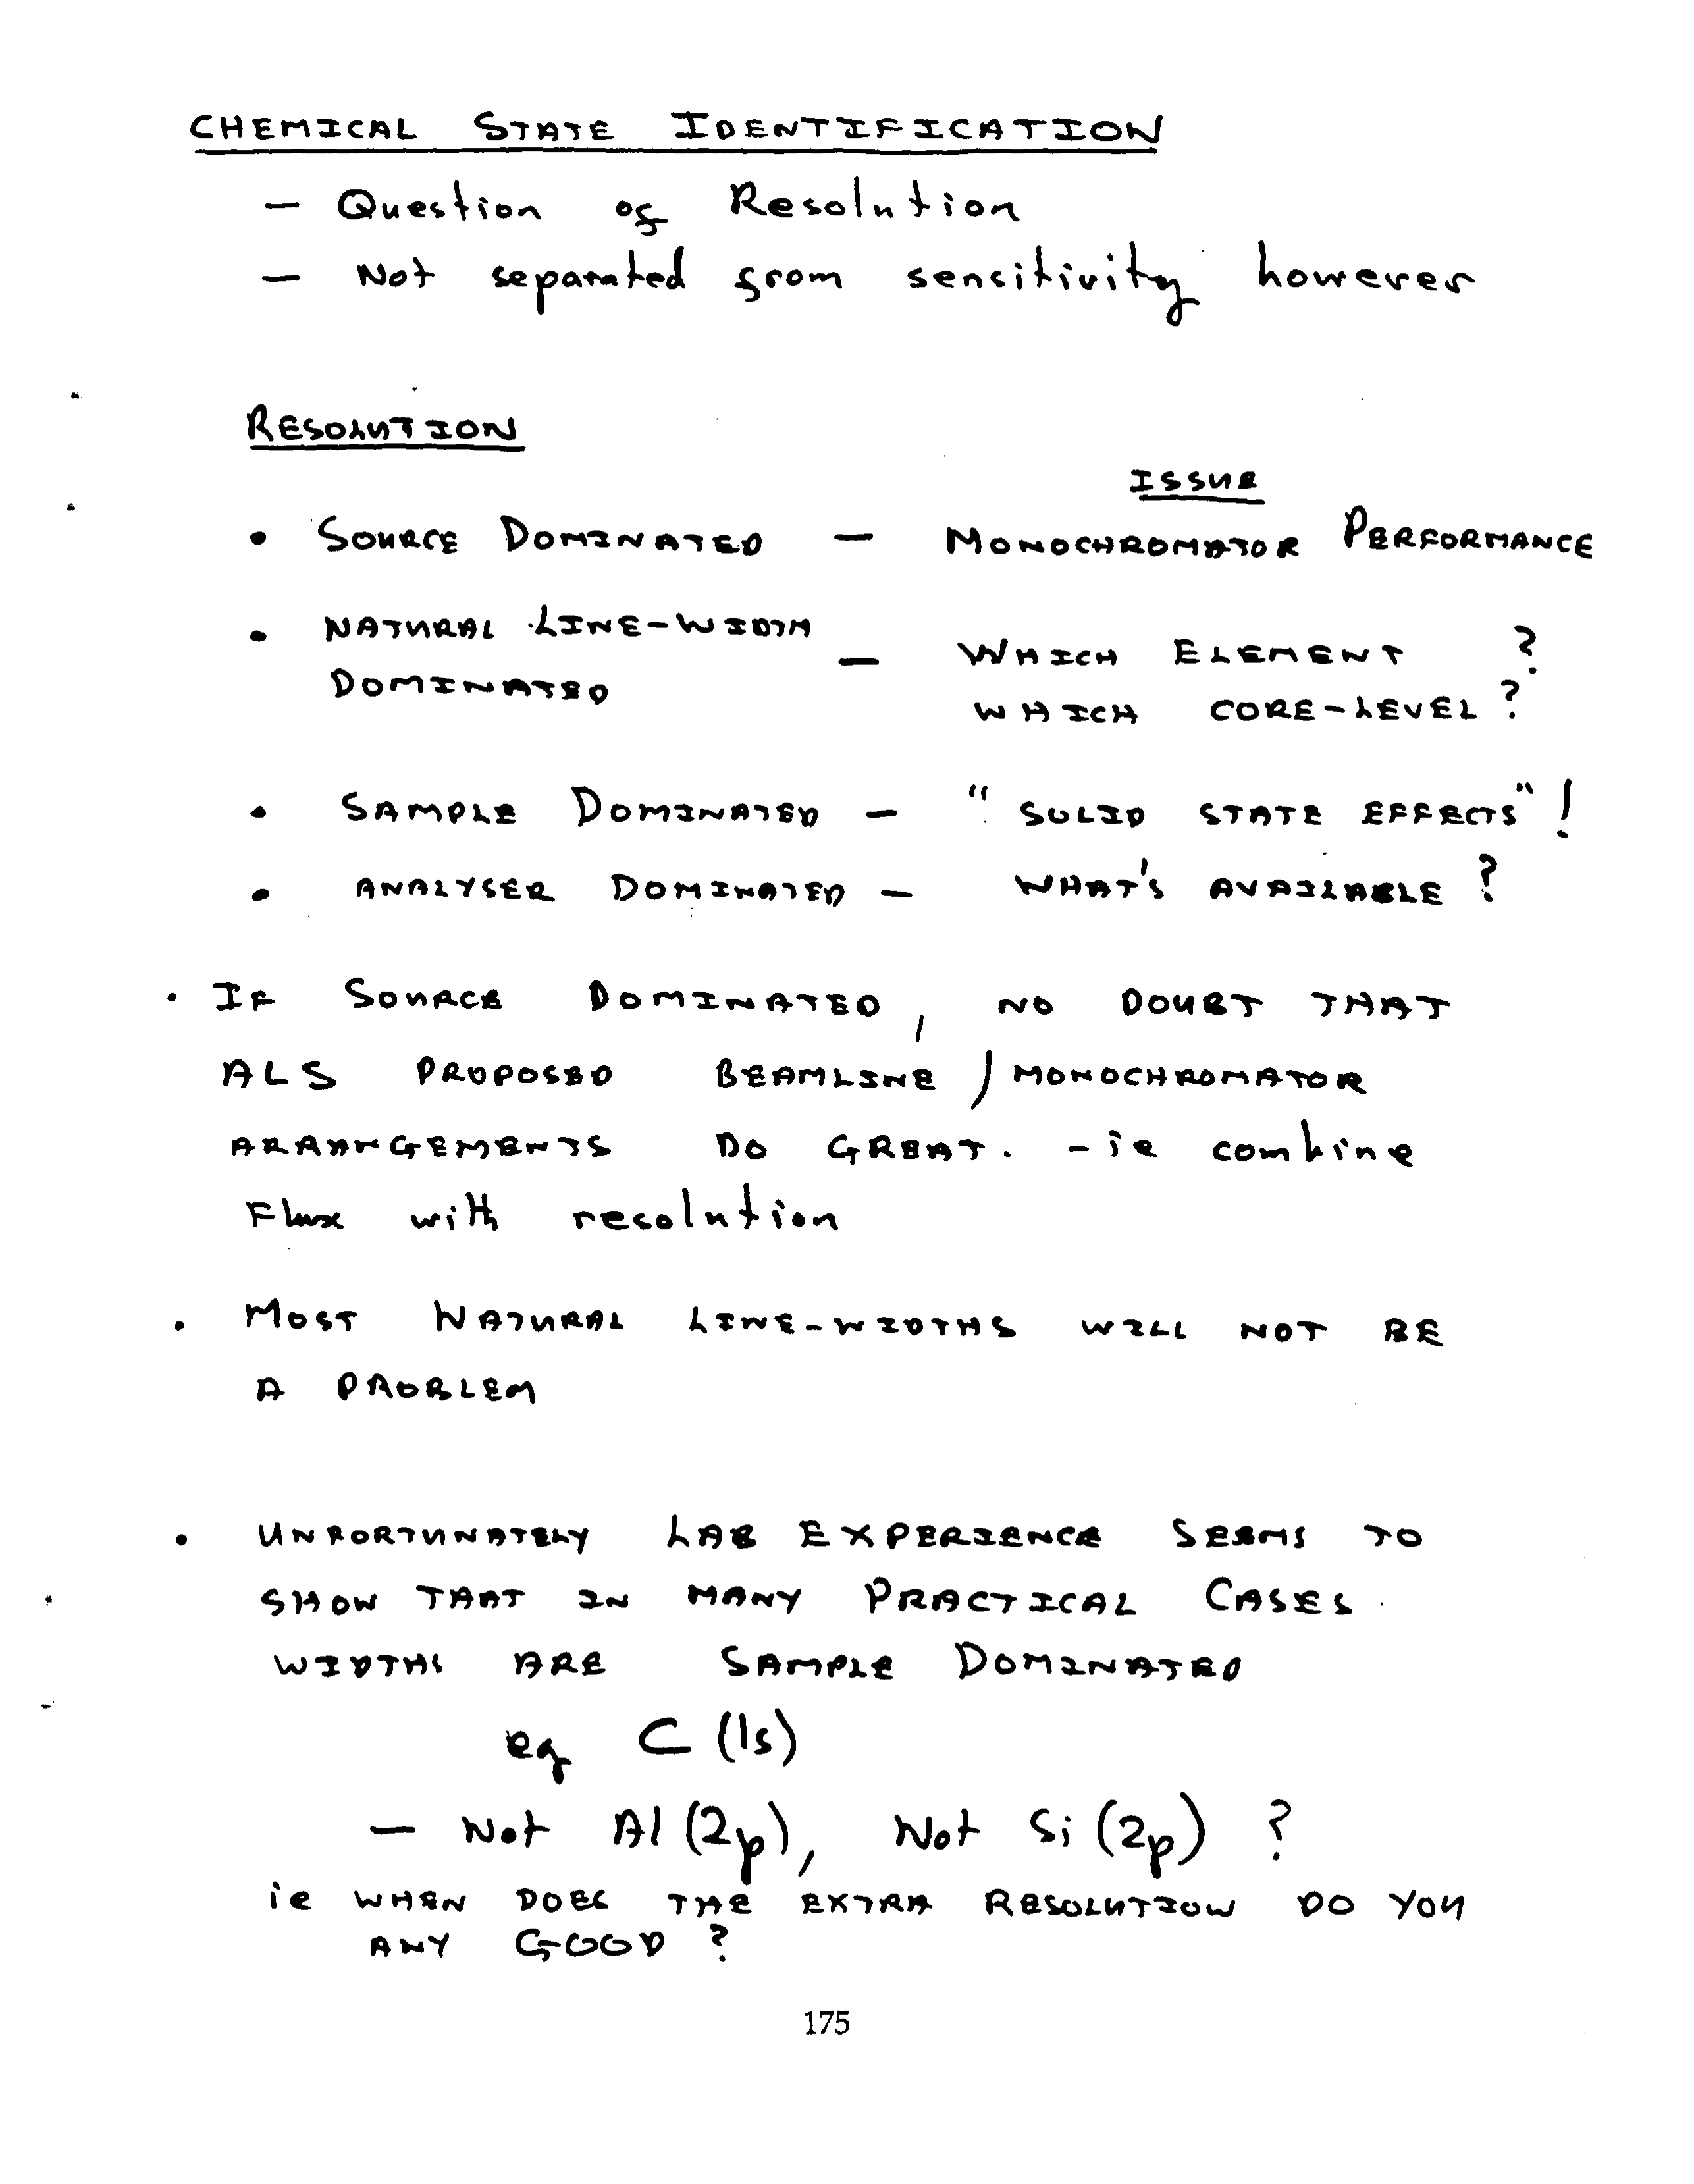 CHEMICAL STATE IDENTIFICATION
— Question of Resolution
— Not separated from sensitivity however
RESOLUTION
ISSUE
• SOURCE DOMINATED — MONOCHROMATOR PERFORMANCE
• NATURAL LINE-WIDTH
DOMINATED — WHICH ELEMENT ?
WHICH CORE-LEVEL ?
• SAMPLE DOMINATED — "SOLID STATE EFFECTS" !
• ANALYSER DOMINATED — WHAT'S AVAILABLE ?
• IF SOURCE DOMINATED, NO DOUBT THAT
ALS PROPOSED BEAMLINE / MONOCHROMATOR
ARRANGEMENTS DO GREAT. - ie combine
Flux with resolution
• MOST NATURAL LINE-WIDTHS WILL NOT BE
A PROBLEM
• UNFORTUNATELY LAB EXPERIENCE SEEMS TO
SHOW THAT IN MANY PRACTICAL CASES
WIDTHS ARE SAMPLE DOMINATED
eg C (1s)
— Not Al (2p), Not Si (2p) ?
ie WHEN DOES THE EXTRA RESOLUTION DO YOU
ANY GOOD ?
175